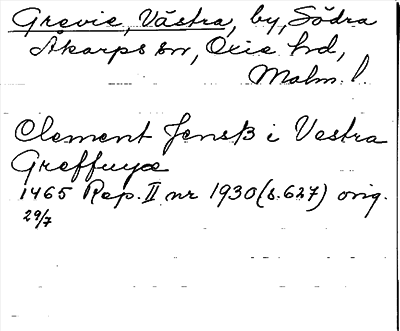 Grevie, Västra, by, Södra
Åkarps sn, Oxie hd,
Malm. l.
Clement Jensß i Vestra
Greffuyæ
1465 Rep. II nr 1930 (s. 627) orig.
29/7